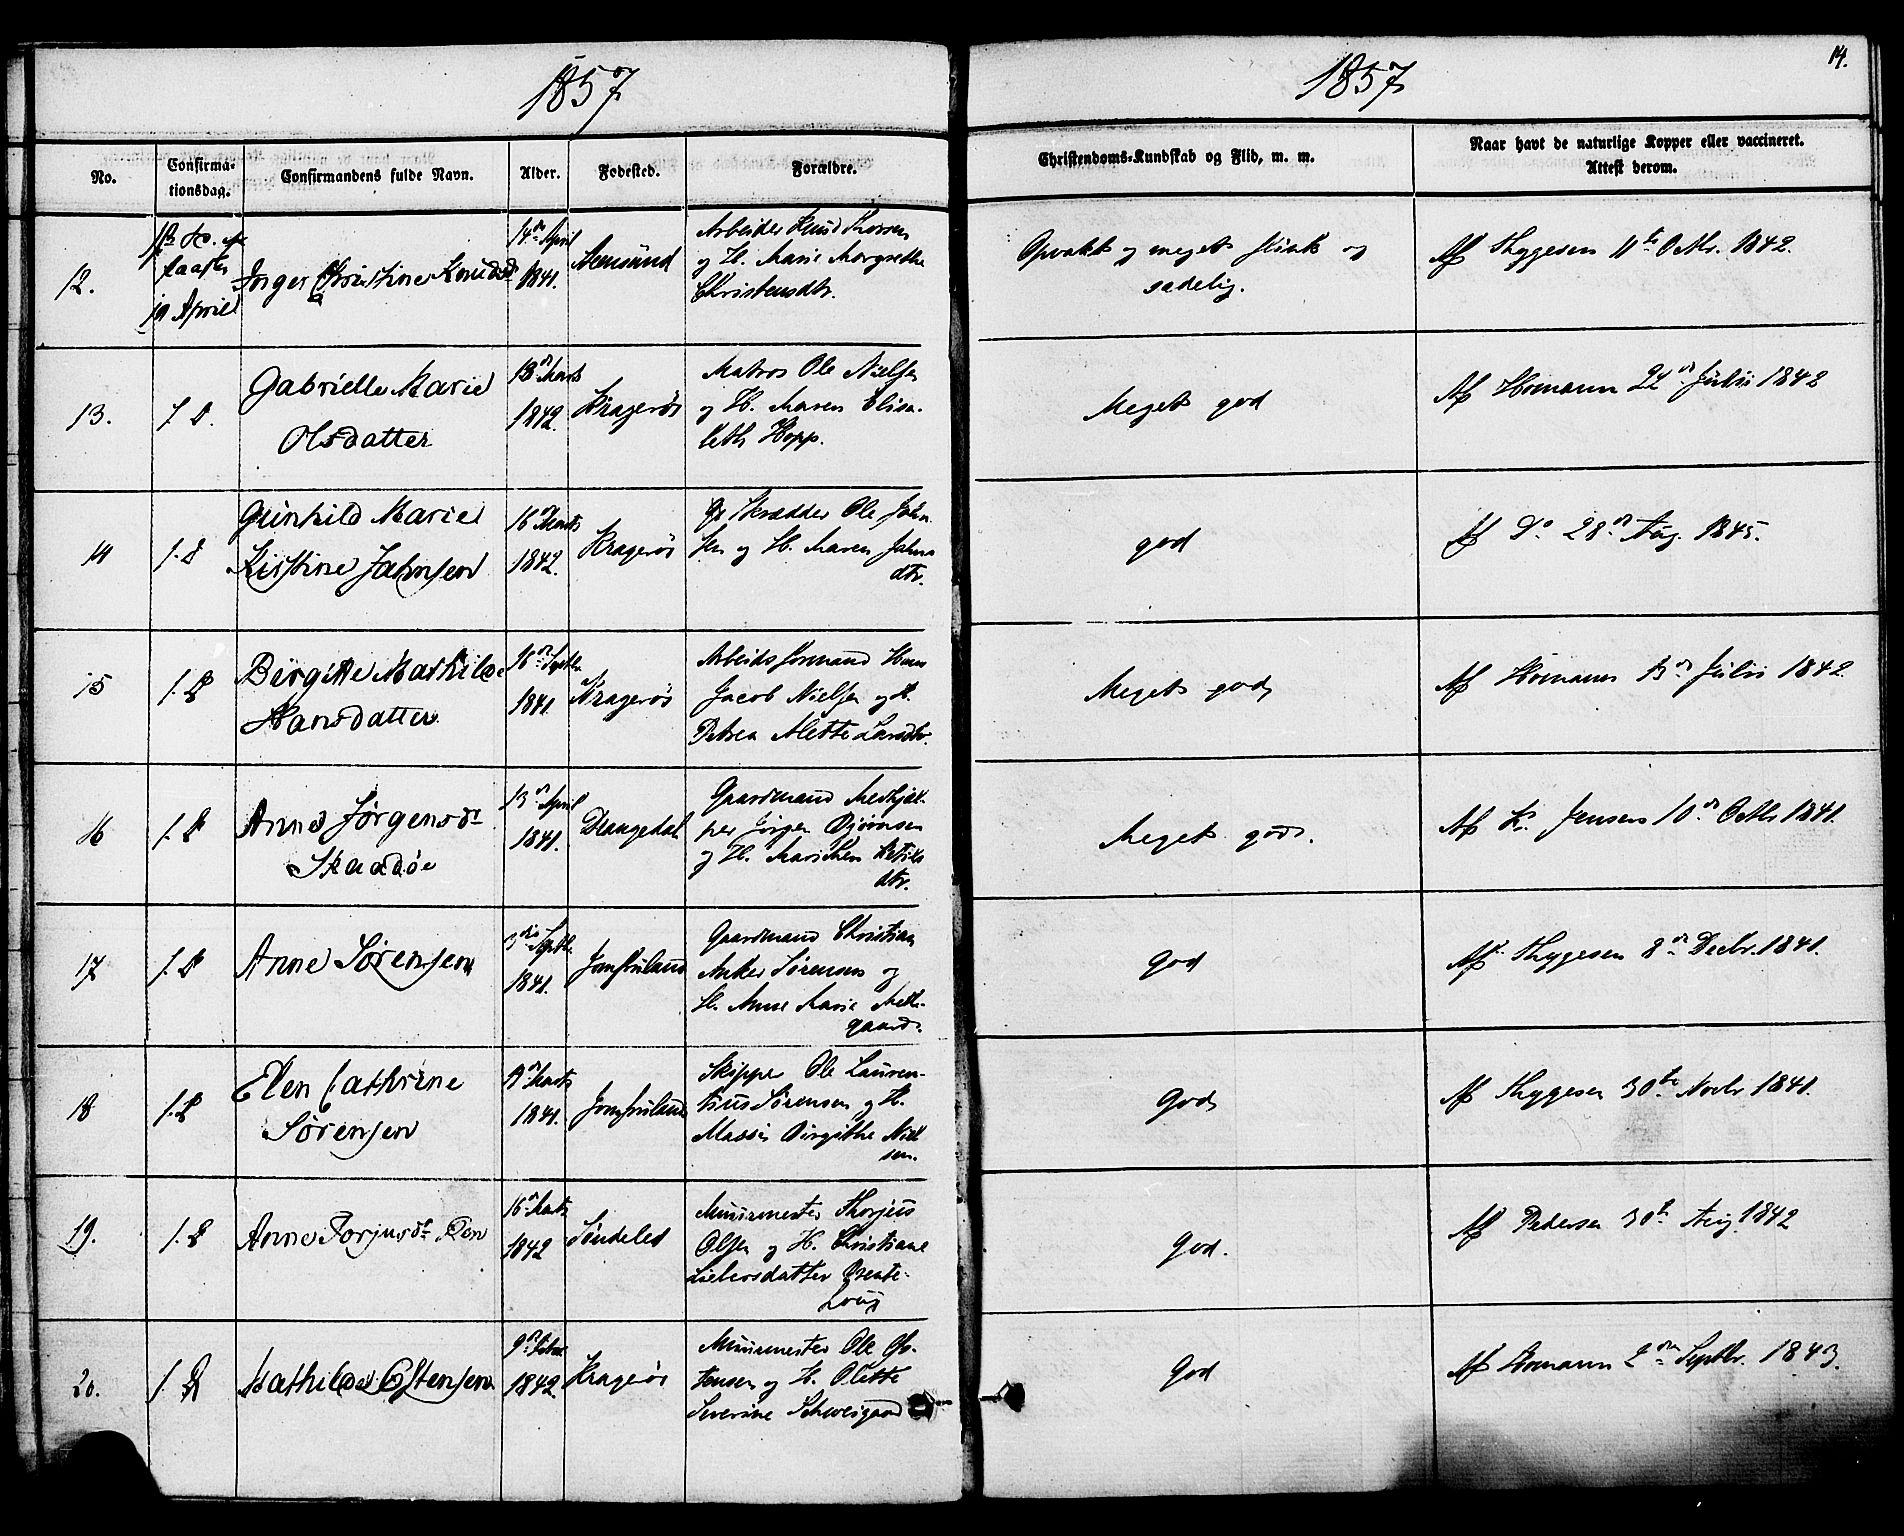 1857
1857
14.
No.
Confirma-
tionsdag.
Confirmandens fulde Navn.
Alder.
Fodested.
Forældre.
Christendoms-Kundskab og Flid, m. m.
Naar havt de naturlige Kopper eller vaccineret.
Attest derom.
12.
19 April
Inger Christine Knudsd
14de April
1841.
Arbeider Knud
og H. Marie Margrethe
Christensdtr.
Opvakt og meget flink og
sædelig.
Af Thygesen 11te Octbr. 1842.
13.
1. D.
Gabrielle Marie
Olsdatter
13de Marts
1842.
Kragerøe
Matros Ole Nielsen
og H. Maren Elisa-
beth Hopp.
Meget god
Af Homann Julii 1842
14
1. D
Gunhild Marie
Kirstine Jahnsen
16 Marts
1842.
Kragerøe
Skrædder Ole Jahn
sen og H. Maren Jahns
dtr.
god
Af Do 28de Aug. 1845.
15
1. D
Birgitte Mathilde
Hansdatter
16de Septbr.
1841.
Kragerøe
Arbeidsformand Hans
Jacob Nielsen og H.
Petrea Alette Larsdtr.
Meget god
Af Homann 13de Julii 1842
16
1. D
Anne Jørgensdr
Skaadøe
13de April
1841.
Drangedal
Gaardmand Medhjæl-
per Jørgen Bjørnsen
og H. Marithen Ketils
dtr.
Meget god.
Af Kr. Jensen 10de Octbr 1841.
17
1. D
Anne Sørensen
3die Septbr.
1841.
Jomfruland
Gaardmand Christian
Anker Sørensen og
H. Anne Marie
gaard.
God
Af Thygesen 8de Decbr. 1841.
18
1. D
Elen Cathrine
Sørensen
Marts
1841.
Jomfruland
Skipper Ole Lauren-
tius Sørensen og H.
Massi Birgithe Niel
sen.
God
Af Thygesen 30te Novbr 1841.
19.
1. D
Anne Torjusdr
16de Marts
1842
Søndeled
Muurmester Thorjus
Olsen og H. Christiane
God.
Af Pedersen 30te Aug. 1842
20.
1. D
Mathilde Ostensen
9de Febr.
1842.
Kragerøe
Muurmester Ole Os-
tensen og H. Olette
Severine Schweigaard
God
Af Homann 2den Septbr. 1843.